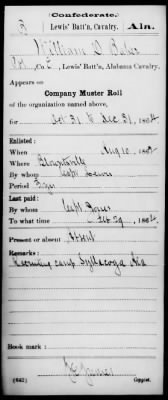 (Confederate.)
B Lewis' Batt'n, Cavalry. Ala.
William D.
Co. C, Lewis' Batt'n, Alabama Cavalry.
Appears on
Company Muster Roll
of the organization named above,
for Oct 31 to Dec 31, 1864
Enlisted:
When Aug 10, 186
Where Blountsville
By whom Capt Lewis
Period 3 yrs
Last paid:
By whom Capt Jones
To what time Feb 29, 1864
Present or absent Absent
Remarks:
camp Syllacoga Ala
Book mark:
(642) Copyist.